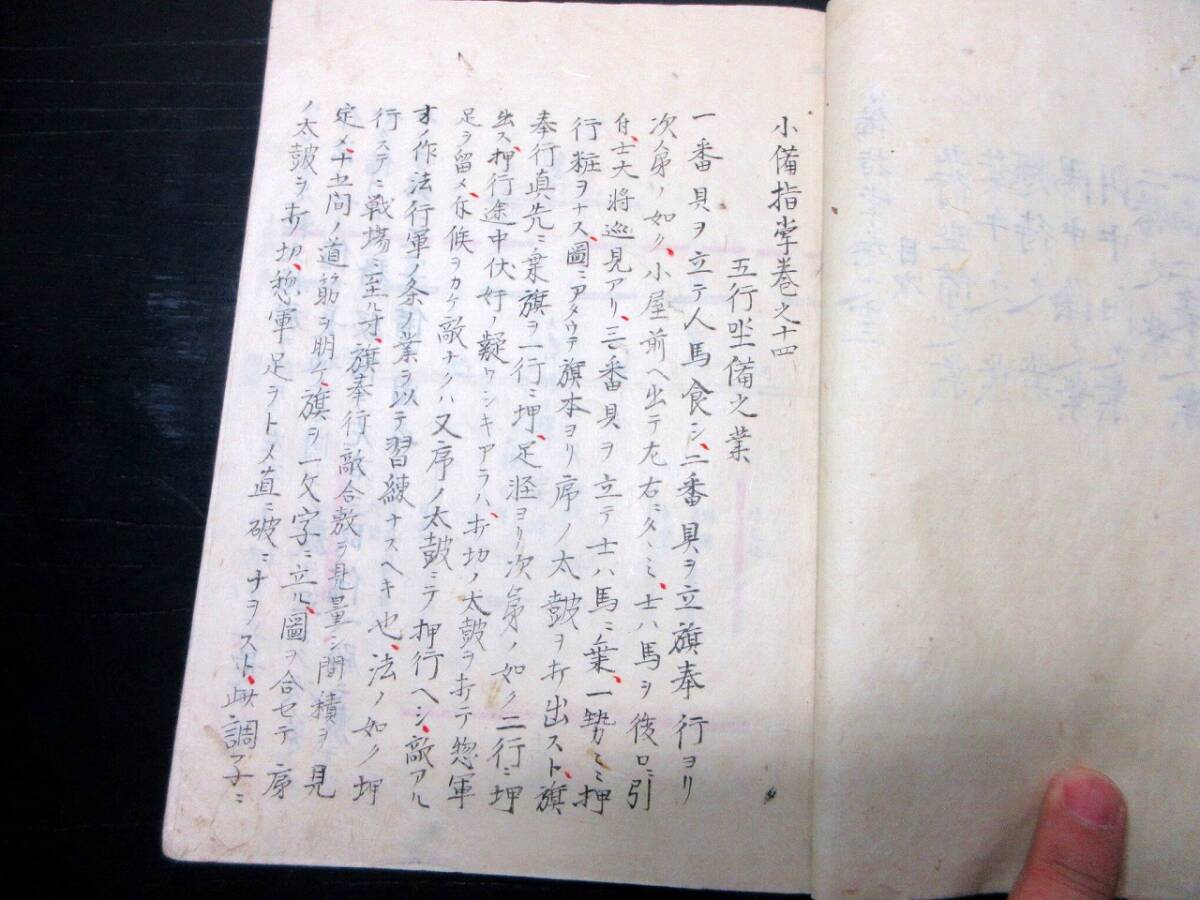 小備指掌巻之十四
五行坐備之業
一番貝ヲ立テ人馬食シ、二番貝ヲ立旗奉行ヨリ
次第ノ如ク、小屋前ヘ出テ左右ニタヽミ、士ハ馬ヲ後口ニ引
付、士大将巡見アリ、三番貝ヲ立テ士ハ馬ニ乗、一勢ミニ押
行粧ヲナス、圖ニアタウテ旗本ヨリ序ノ太鼓ヲ打出スト、旗
奉行真先ニ乗旗ヲ一行ニ押、足軽ヨリ次第ノ如ク二行ニ押
出ス、押行途中伏奸ノ疑ワシキアラハ、打切ノ太鼓ヲ打テ惣軍
足ヲ留メ、斥候ヲカケ敵ナクハ又序ノ太鼓ニテ押行ヘシ、敵アル
才ノ作法行軍ノ条ノ業ヲ以テ習練ナスヘキ也、法ノ如ク押
行ステニ戦場ニ至ル寸、旗奉行敵合敷ヲ見量シ間積ヲ見
定メ、十五間ノ道筋ヲ明ケ、旗ヲ一文字ニ立ル、圖ヲ合セテ序
ノ太鼓ヲ打切、惣軍足ヲトメ直ニ破ニナヲスト、此調子ニ